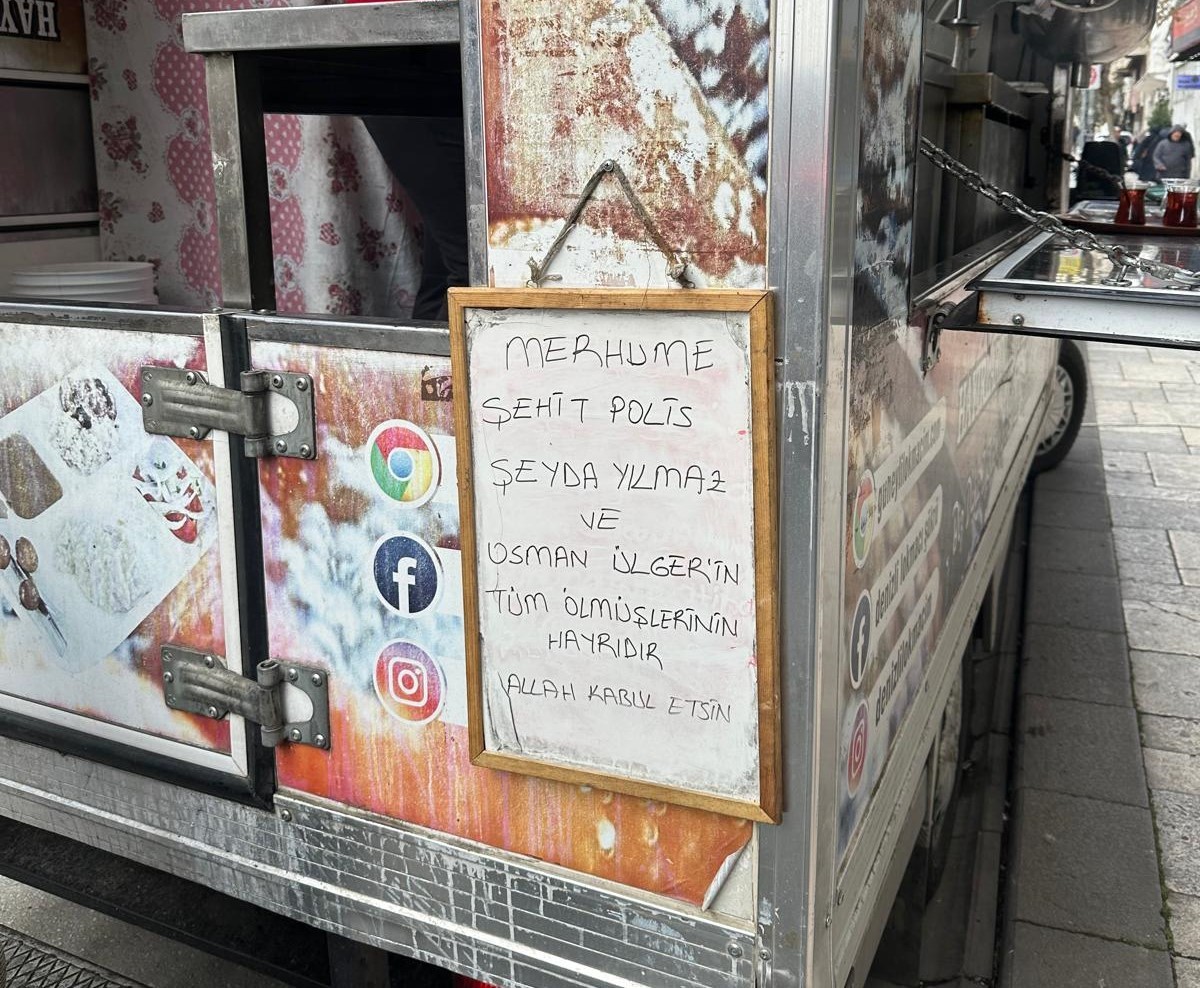 HAY
MERHUME
ŞEHİT POLİS
ŞEYDA YILMAZ
VE
OSMAN ÜLGER'İN
TÜM ÖLMÜŞLERİNİN
HAYRIDIR
ALLAH KABUL ETSİN
denizli lokmacı